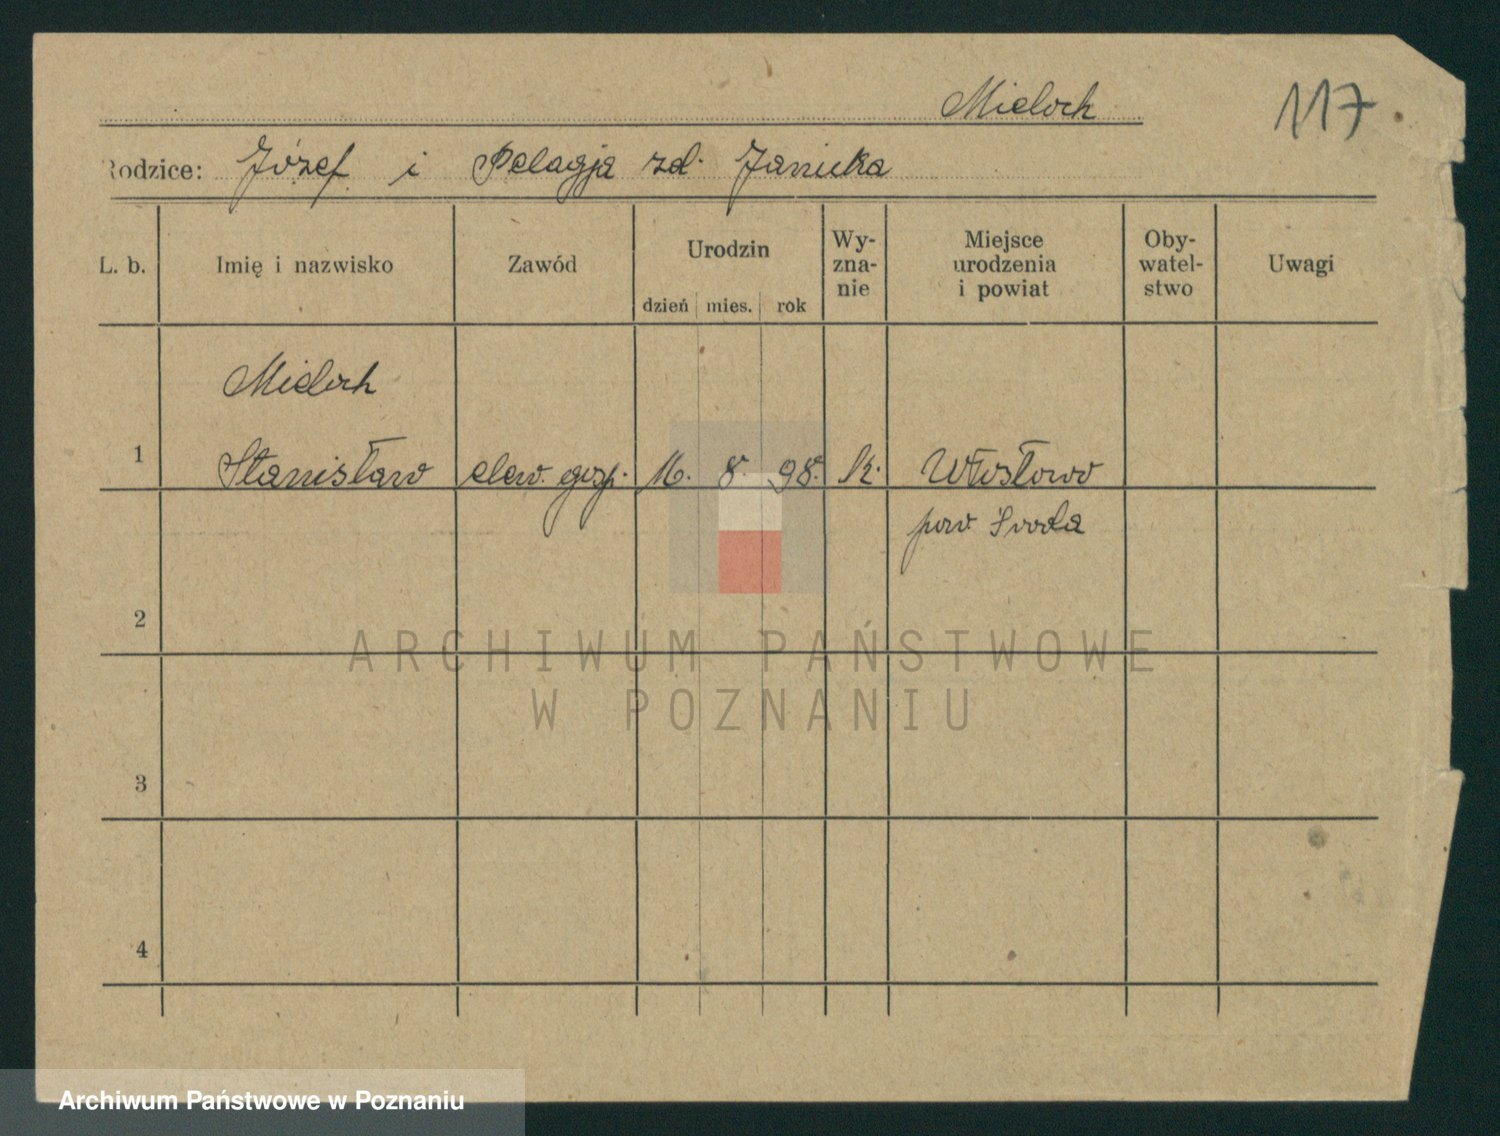 Mieloch
117
Rodzice: Józef i Pelagja zd. Janicka
L. b. Imię i nazwisko Zawód Urodzin dzień mies. rok Wy-zna-nie Miejsce urodzenia i powiat Oby-watel-stwo Uwagi
Mieloch
1 Stanisław elew. gosp. 16. 8. 98. Rk. Włostowo
pow Środa
2
3
4
ARCHIWUM PAŃSTWOWE
W POZNANIU
Archiwum Państwowe w Poznaniu